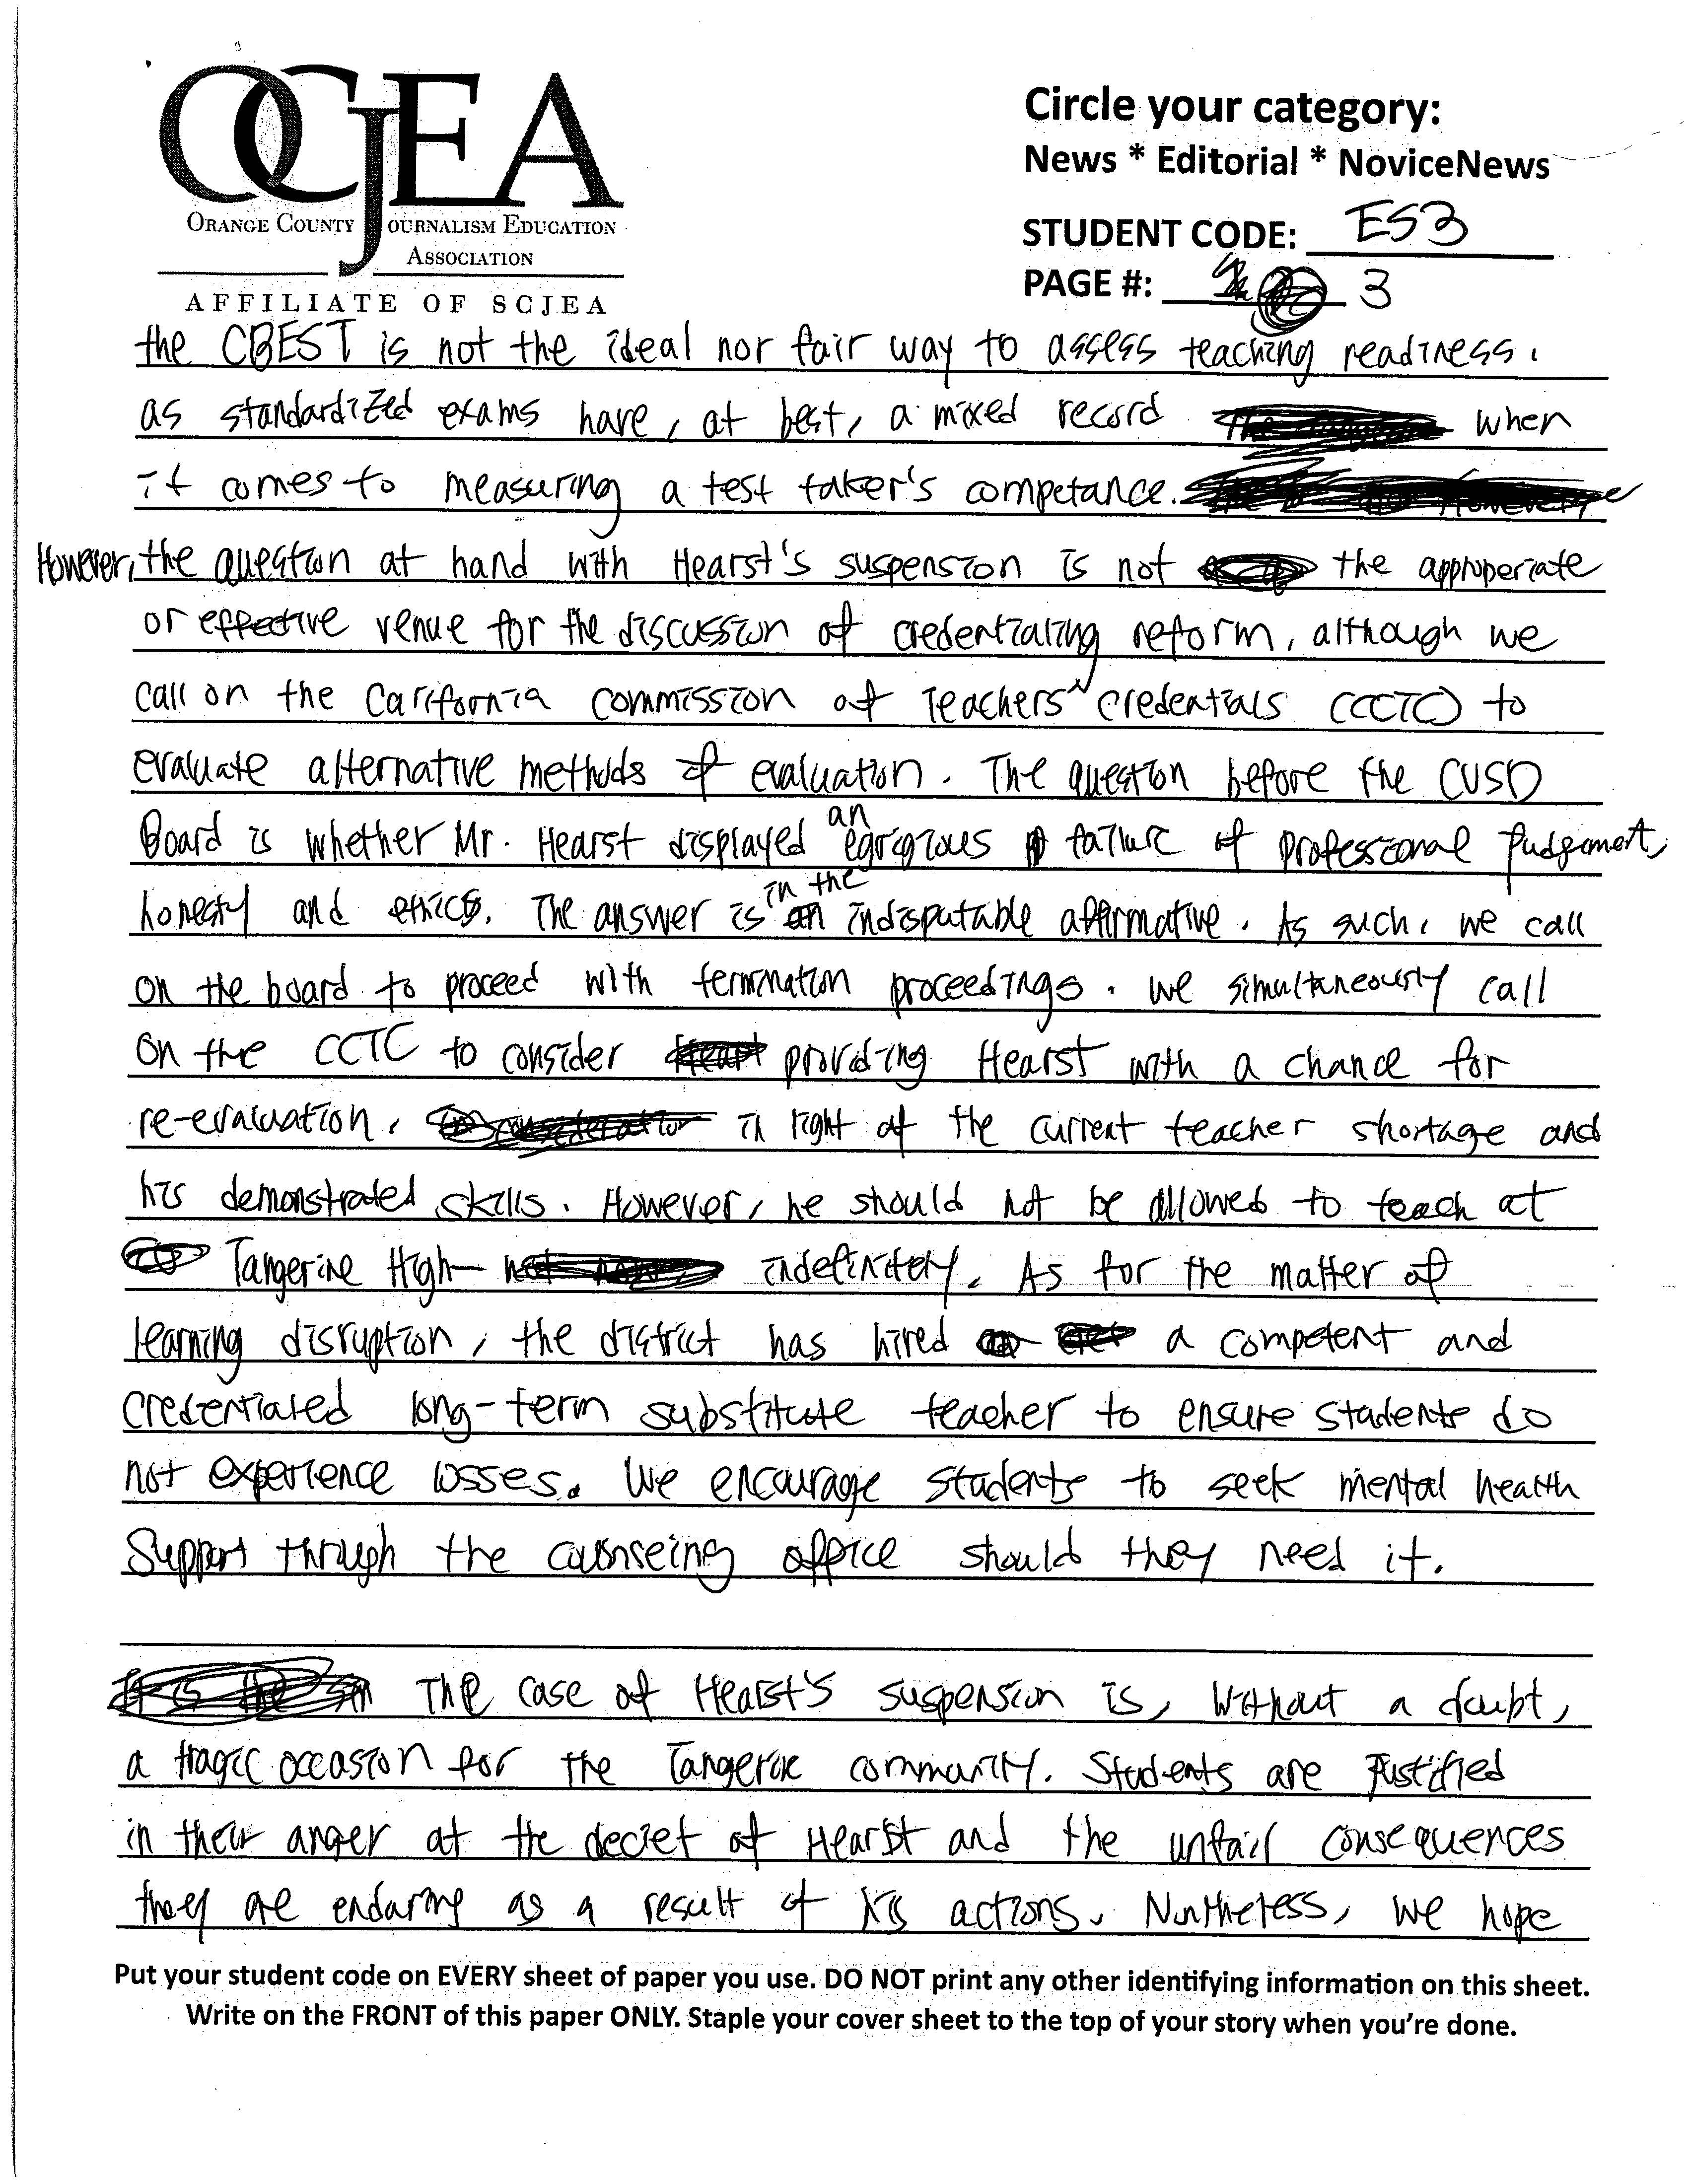 OCJEA
ORANGE COUNTY JOURNALISM EDUCATION
ASSOCIATION
AFFILIATE OF SCJEA
Circle your category:
News * Editorial * NoviceNews
STUDENT CODE: ES3
PAGE #: 3
the CBEST is not the ideal nor fair way to assess teaching readiness.
as standardized exams have, at best, a mixed record when
it comes to measuring a test taker's competance.
However, the question at hand with Hearst's suspension is not the approperiate
or effective venue for the discussion of credentialing reform, although we
call on the California Commission of Teachers' Credentials (CCTC) to
evaluate alternative methods of evaluation. The question before the CUSD
Board is whether Mr. Hearst displayed an egrigious failure of professional judgement,
honesty and ethics. The answer is in the indisputable affirmative. As such, we call
on the board to proceed with termination proceedings. We simultaneously call
on the CCTC to consider providing Hearst with a chance for
re-evaluation, in light of the current teacher shortage and
his demonstrated skills. However, he should not be allowed to teach at
Tangerine High— indefinitely. As for the matter of
learning disruption, the district has hired a competent and
credentialed long-term substitute teacher to ensure students do
not experience losses. We encourage students to seek mental health
Support through the counseing office should they need it.
The case of Hearst's suspension is, without a doubt,
a tragic occasion for the Tangerine community. Students are justified
in their anger at the deciet of Hearst and the unfair consequences
they are enduring as a result of his actions. Nontheless, we hope
Put your student code on EVERY sheet of paper you use. DO NOT print any other identifying information on this sheet.
Write on the FRONT of this paper ONLY. Staple your cover sheet to the top of your story when you're done.